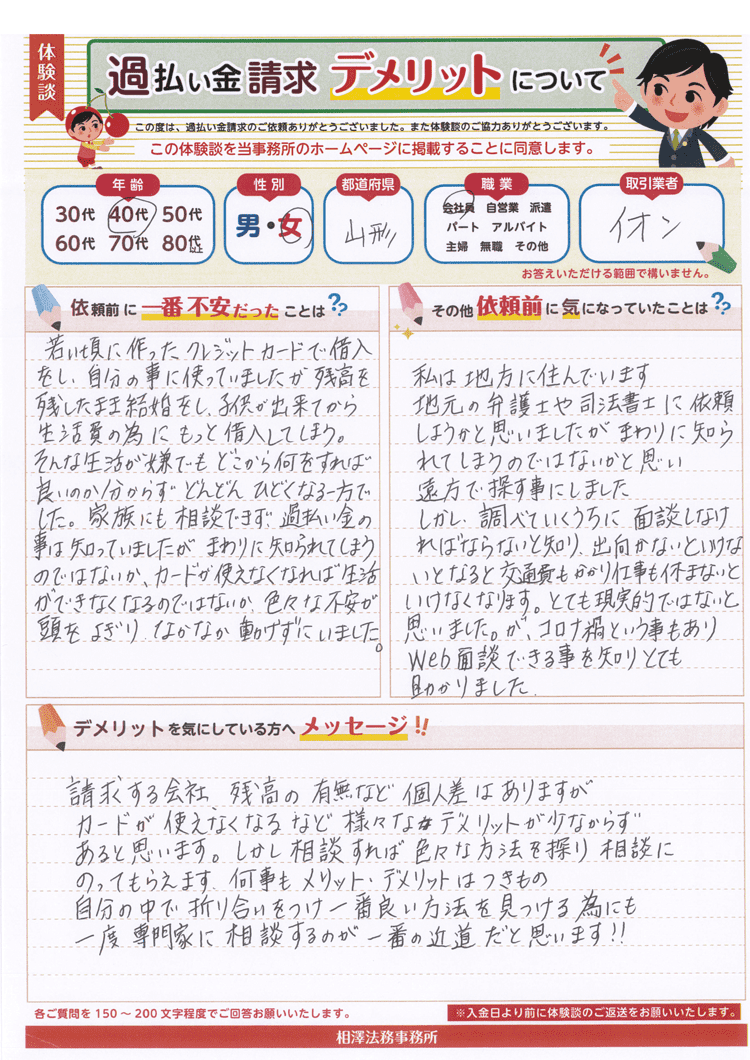 体験談
過払い金請求 デメリットについて
この度は、過払い金請求のご依頼ありがとうございました。また体験談のご協力ありがとうございます。
この体験談を当事務所のホームページに掲載することに同意します。
年齢
30代 40代 50代
60代 70代 80代以上
性別
男・女
都道府県
山形
職業
会社員 自営業 派遣
パート アルバイト
主婦 無職 その他
取引業者
イオン
お答えいただける範囲で構いません。
依頼前に一番不安だったことは??
若い頃に作ったクレジットカードで借入
をし、自分の事に使っていましたが残高を
残したまま結婚をし、子供が出来てから
生活費の為にもっと借入してしまう。
そんな生活が嫌でもどこから何をすれば
良いのか分からずどんどんひどくなる一方で
した。家族にも相談できず過払い金の
事は知っていましたがまわりに知られてしまう
のではないか、カードが使えなくなれば生活
ができなくなるのではないか、色々な不安が
頭をよぎりなかなか動けずにいました。
その他依頼前に気になっていたことは??
私は地方に住んでいます
地元の弁護士や司法書士に依頼
しようかと思いましたがまわりに知ら
れてしまうのではないかと思い
遠方で探す事にしました
しかし、調べていくうちに面談しなけ
ればならないと知り、出向かないといけな
いとなると交通費もかかり仕事も休まないと
いけなくなります。とても現実的ではないと
思いました。が、コロナ禍という事もあり
Web面談できる事を知りとても
助かりました.
デメリットを気にしている方へ メッセージ!!
請求する会社、残高の有無など個人差はありますが
カードが使えなくなるなど様々なデメリットが少なからず
あると思います。しかし相談すれば色々な方法を探り相談に
のってもらえます.何事もメリット・デメリットはつきもの
自分の中で折り合いをつけ一番良い方法を見つける為にも
一度専門家に相談するのが一番の近道だと思います!!
各ご質問を150～200文字程度でご回答お願いいたします。
※入金日より前に体験談のご返送をお願いいたします。
相澤法務事務所